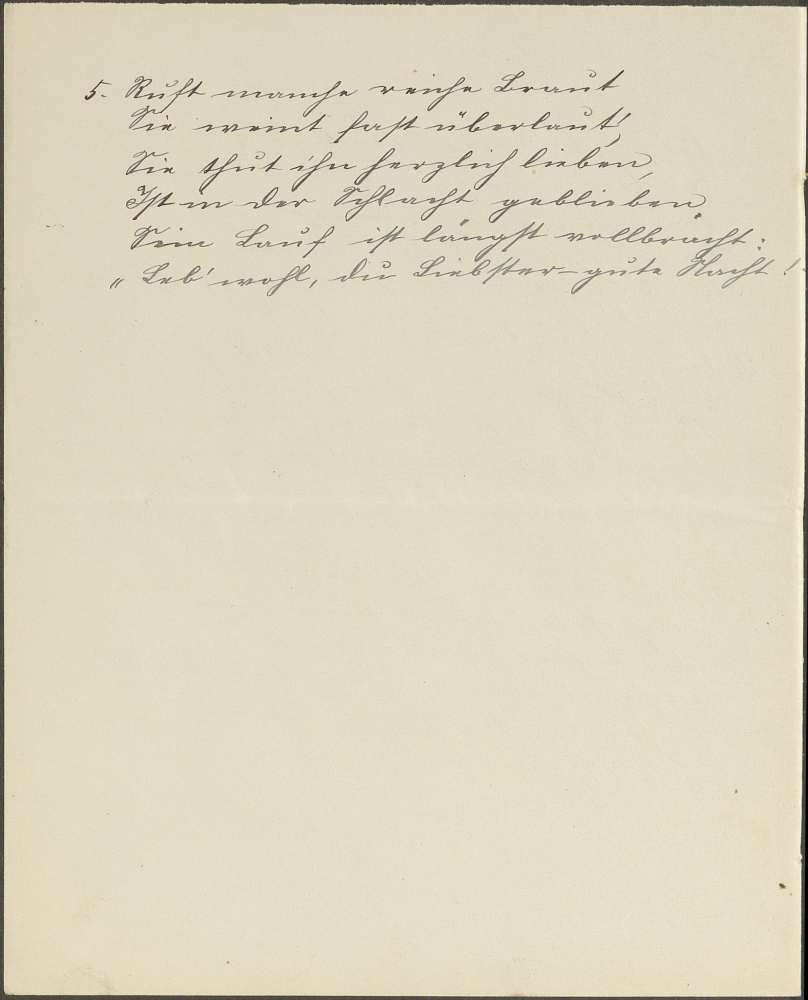 5. Ruft manche reiche Braut
Sie weint fast überlaut!
Sie thut ihn herzlich lieben,
Ist in der Schlacht geblieben
Sein Lauf ist längst vollbracht:
„ Leb' wohl, du Liebster – gute Nacht!